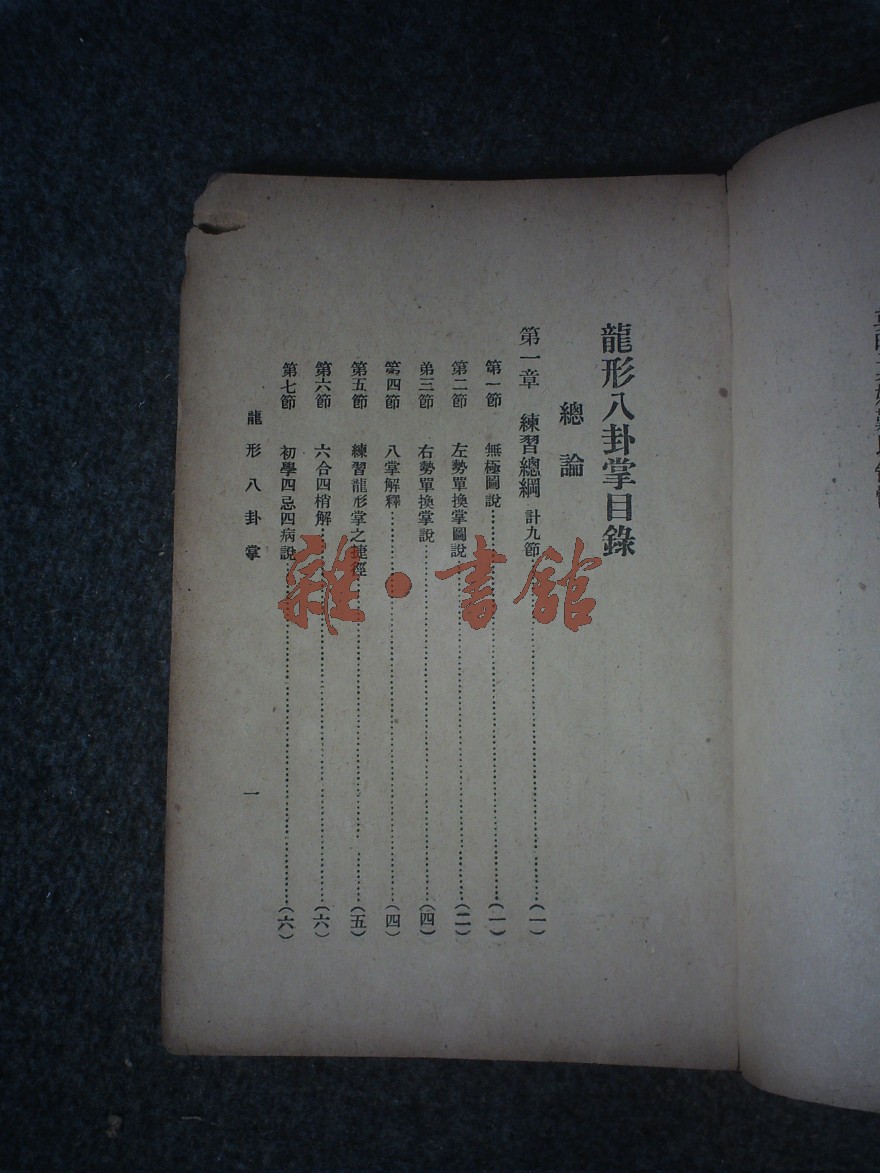 龍形八卦掌目錄
總論
第一章 練習總綱 計九節……(一)
第一節 無極圖說……(一)
第二節 左勢單換掌圖說……(二)
第三節 右勢單換掌說……(四)
第四節 八掌解釋……(四)
第五節 練習龍形掌之捷徑……(五)
第六節 六合四梢解……(六)
第七節 初學四忌四病說……(六)
龍形八卦掌 一
雜·書館